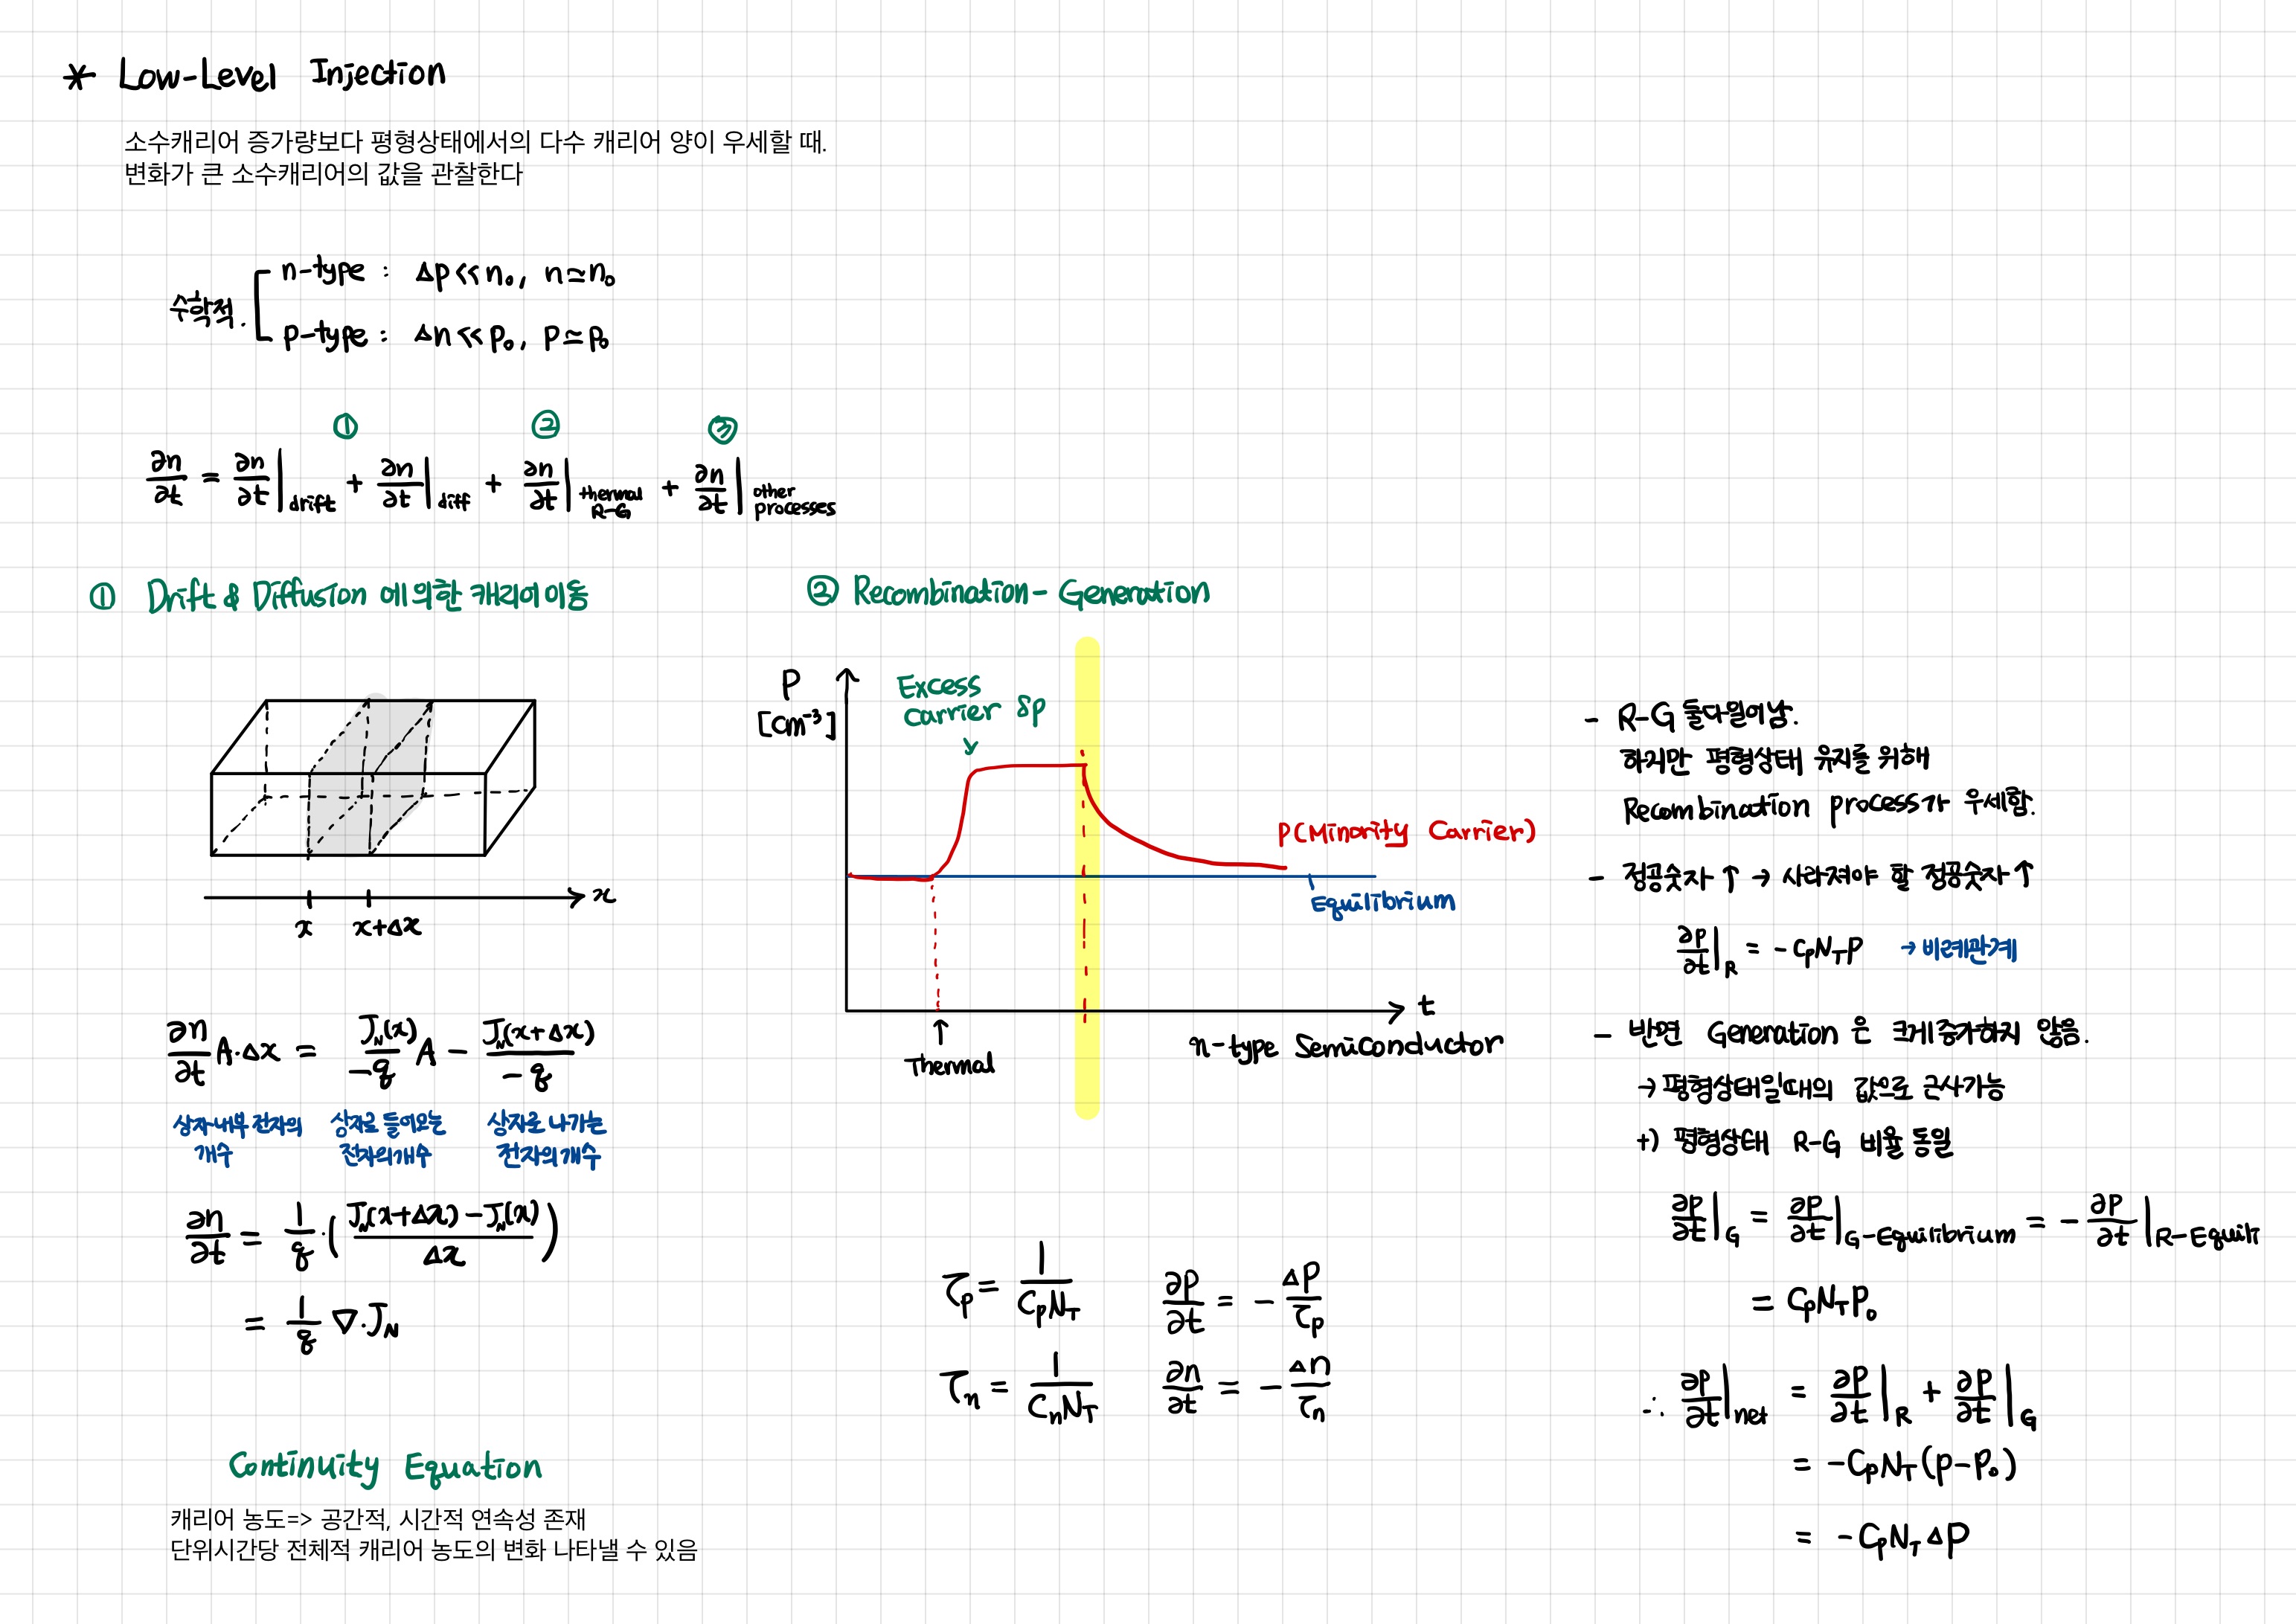 * Low-Level Injection
소수캐리어 증가량보다 평형상태에서의 다수 캐리어 양이 우세할 때.
변화가 큰 소수캐리어의 값을 관찰한다
수학적.
n-type : Δp << n₀, n ≃ n₀
p-type : Δn << p₀, p ≃ p₀
① ② ③
∂n/∂t = ∂n/∂t|drift + ∂n/∂t|diff + ∂n/∂t|thermal R-G + ∂n/∂t|other processes
① Drift & Diffusion 에 의한 캐리어 이동
x
x x+Δx
∂n/∂t A·Δx = J_N(x)/-q A - J_N(x+Δx)/-q
상자 내부 전자의 개수
상자로 들어오는 전자의 개수
상자로 나가는 전자의 개수
∂n/∂t = 1/q · ( (J_N(x+Δx) - J_N(x))/Δx )
= 1/q ∇·J_N
Continuity Equation
캐리어 농도=> 공간적, 시간적 연속성 존재
단위시간당 전체적 캐리어 농도의 변화 나타낼 수 있음
② Recombination - Generation
P
[cm⁻³]
Excess
carrier δp
P(Minority Carrier)
Equilibrium
t
Thermal
n-type Semiconductor
τp = 1/(CpN_T) ∂p/∂t = - Δp/τp
τn = 1/(CnN_T) ∂n/∂t = - Δn/τn
- R-G 둘다 일어남.
하지만 평형상태 유지를 위해
Recombination process가 우세함.
- 정공숫자 ↑ → 사라져야 할 정공숫자 ↑
∂p/∂t|R = - CpN_TP → 비례관계
- 반면 Generation 은 크게 증가하지 않음.
→ 평형상태일때의 값으로 근사가능
+) 평형상태 R-G 비율 동일
∂p/∂t|G = ∂p/∂t|G-Equilibrium = - ∂p/∂t|R-Equili
= CpN_TP₀
∴ ∂p/∂t|net = ∂p/∂t|R + ∂p/∂t|G
= -CpN_T(p-p₀)
= -CpN_TΔP